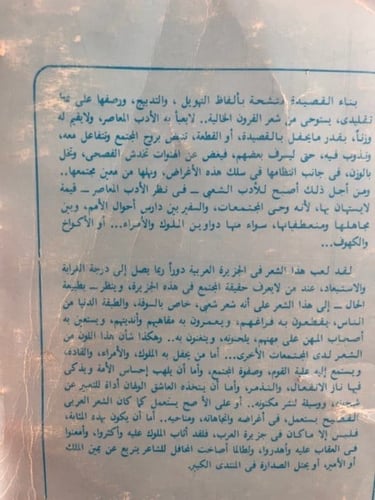 بناء القصيدة متشحة بألفاظ التهويل ، والتدبيج ، ورصفها على
تقليدي، يستوحى من شعر القرون الخالية.. لايعبأ به الأدب المعاصر، ولايقيم له
وزناً، بقدر مايحفل بالقصيدة، أو القطعة، تنبض بروح المجتمع وتتفاعل معه،
وتذوب فيه، حتى ليسرف بعضهم، فيغض عن الهنوات تخدش الفصحى، وتخل
بالوزن، في جانب انتظامها في سلك هذه الأغراض، ونهلها من معين مجتمعها..
ومن أجل ذلك أصبح للأدب الشعبي — في نظر الأدب المعاصر — قيمة
لايستهان بها، لأنه وحى المجتمعات، والسفير بين دارس أحوال الأمم، وبين
مجاهلها ومنعطفاتها، سواء منها دواوين الملوك والأمراء... أو الأكواخ
والكهوف...
لقد لعب هذا الشعر في الجزيرة العربية دوراً ربما يصل إلى درجة الغرابة
والاستبعاد، عند من لايعرف حقيقة المجتمع في هذه الجزيرة، وينظر — بطبيعة
الحال — إلى هذا الشعر على أنه شعر شعبي، خاص بالسوقة، والطبقة الدنيا من
الناس، يقطعون به فراغهم، ويعمرون به مقاهيهم وأنديتهم، ويستعين به
أصحاب المهن على مهنهم، يلحنونه، ويتغنون به.. وهكذا شأن هذا اللون من
الشعر لدى المجتمعات الأخرى... أما من يحفل به الملوك، والأمراء، والقادة،
ويستمع إليه علية القوم، وصفوة المجتمع، وأما أن يلهب إحساس الأمة ويذكى
فيها نار الانفعال، والتذمر، وأما أن يتخذه العاشق الولهان أداة للتعبير عن
شجونه، ووسيلة لنشر مكنونه.. أو على الأصح يستعمل كما كان الشعر العربي
الفصيح يستعمل، في أغراضه واتجاهاته، ومناحيه.. أما أن يكون بهذه المثابة،
فليس إلا ماكان في جزيرة العرب، فلقد أثاب الملوك عليه وأكثروا، وأمعنوا
في العقاب عليه وأهدروا، ولطالما أصاخت المحافل للشاعر يتربع عن يمين الملك
أو الأمير، أو يحتل الصدارة في المنتدى الكبير.